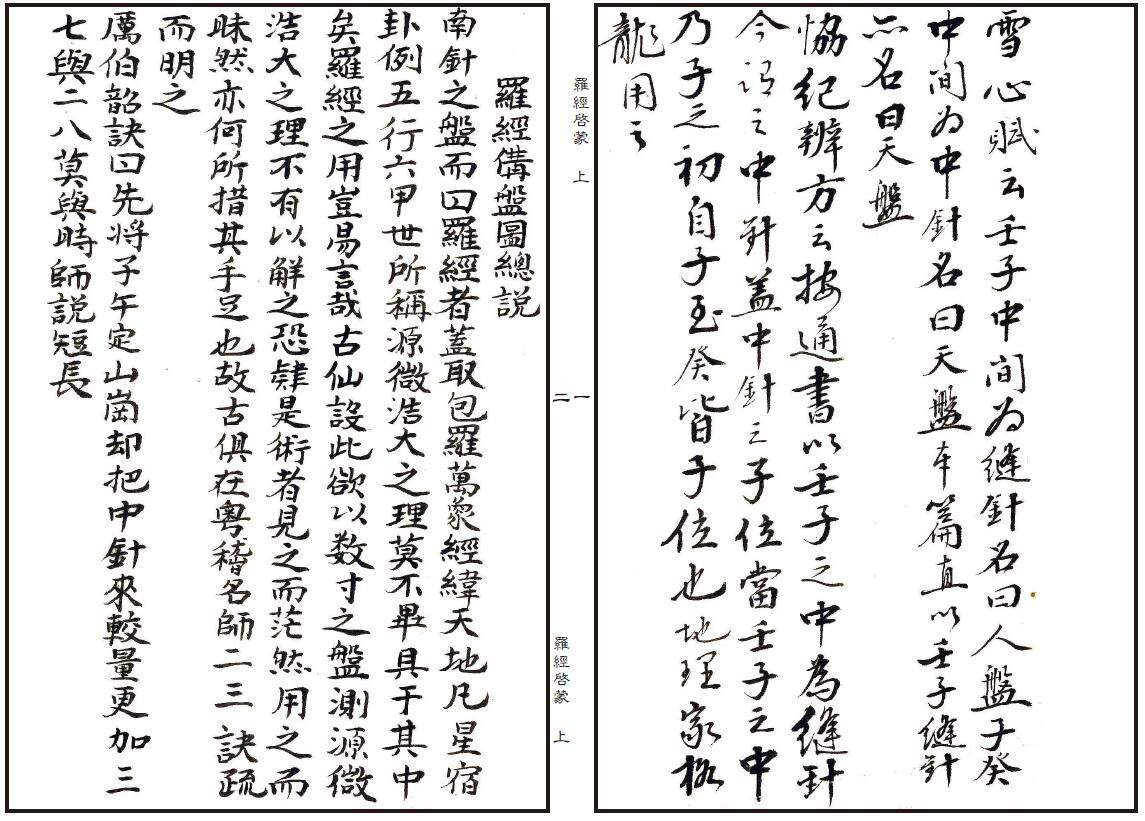 雪心賦云壬子中間為縫針名曰人盤子癸
中間為中針名曰天盤本篇直以壬子縫針
名曰天盤
協紀辨方云按通書以壬子之中為縫針
今謂之中針蓋中針之子位當壬子之中
乃子之初自子至癸皆子位也地理家格
龍用之
羅經啓蒙 上
一
二
羅經啓蒙 上
羅經備盤圖總説
南針之盤而曰羅經者蓋取包羅萬象經緯天地凡星宿
卦例五行六甲世所稱源微浩大之理莫不畢具于其中
矣羅經之用豈易言哉古仙設此欲以数寸之盤測源微
浩大之理不有以解之恐肄是術者見之而茫然用之而
昧然亦何所措其手足也故古俱在粤稽名師二三訣疏
而明之
厲伯韶訣曰先将子午定山崗却把中針來較量更加三
七與二八莫與時師説短長